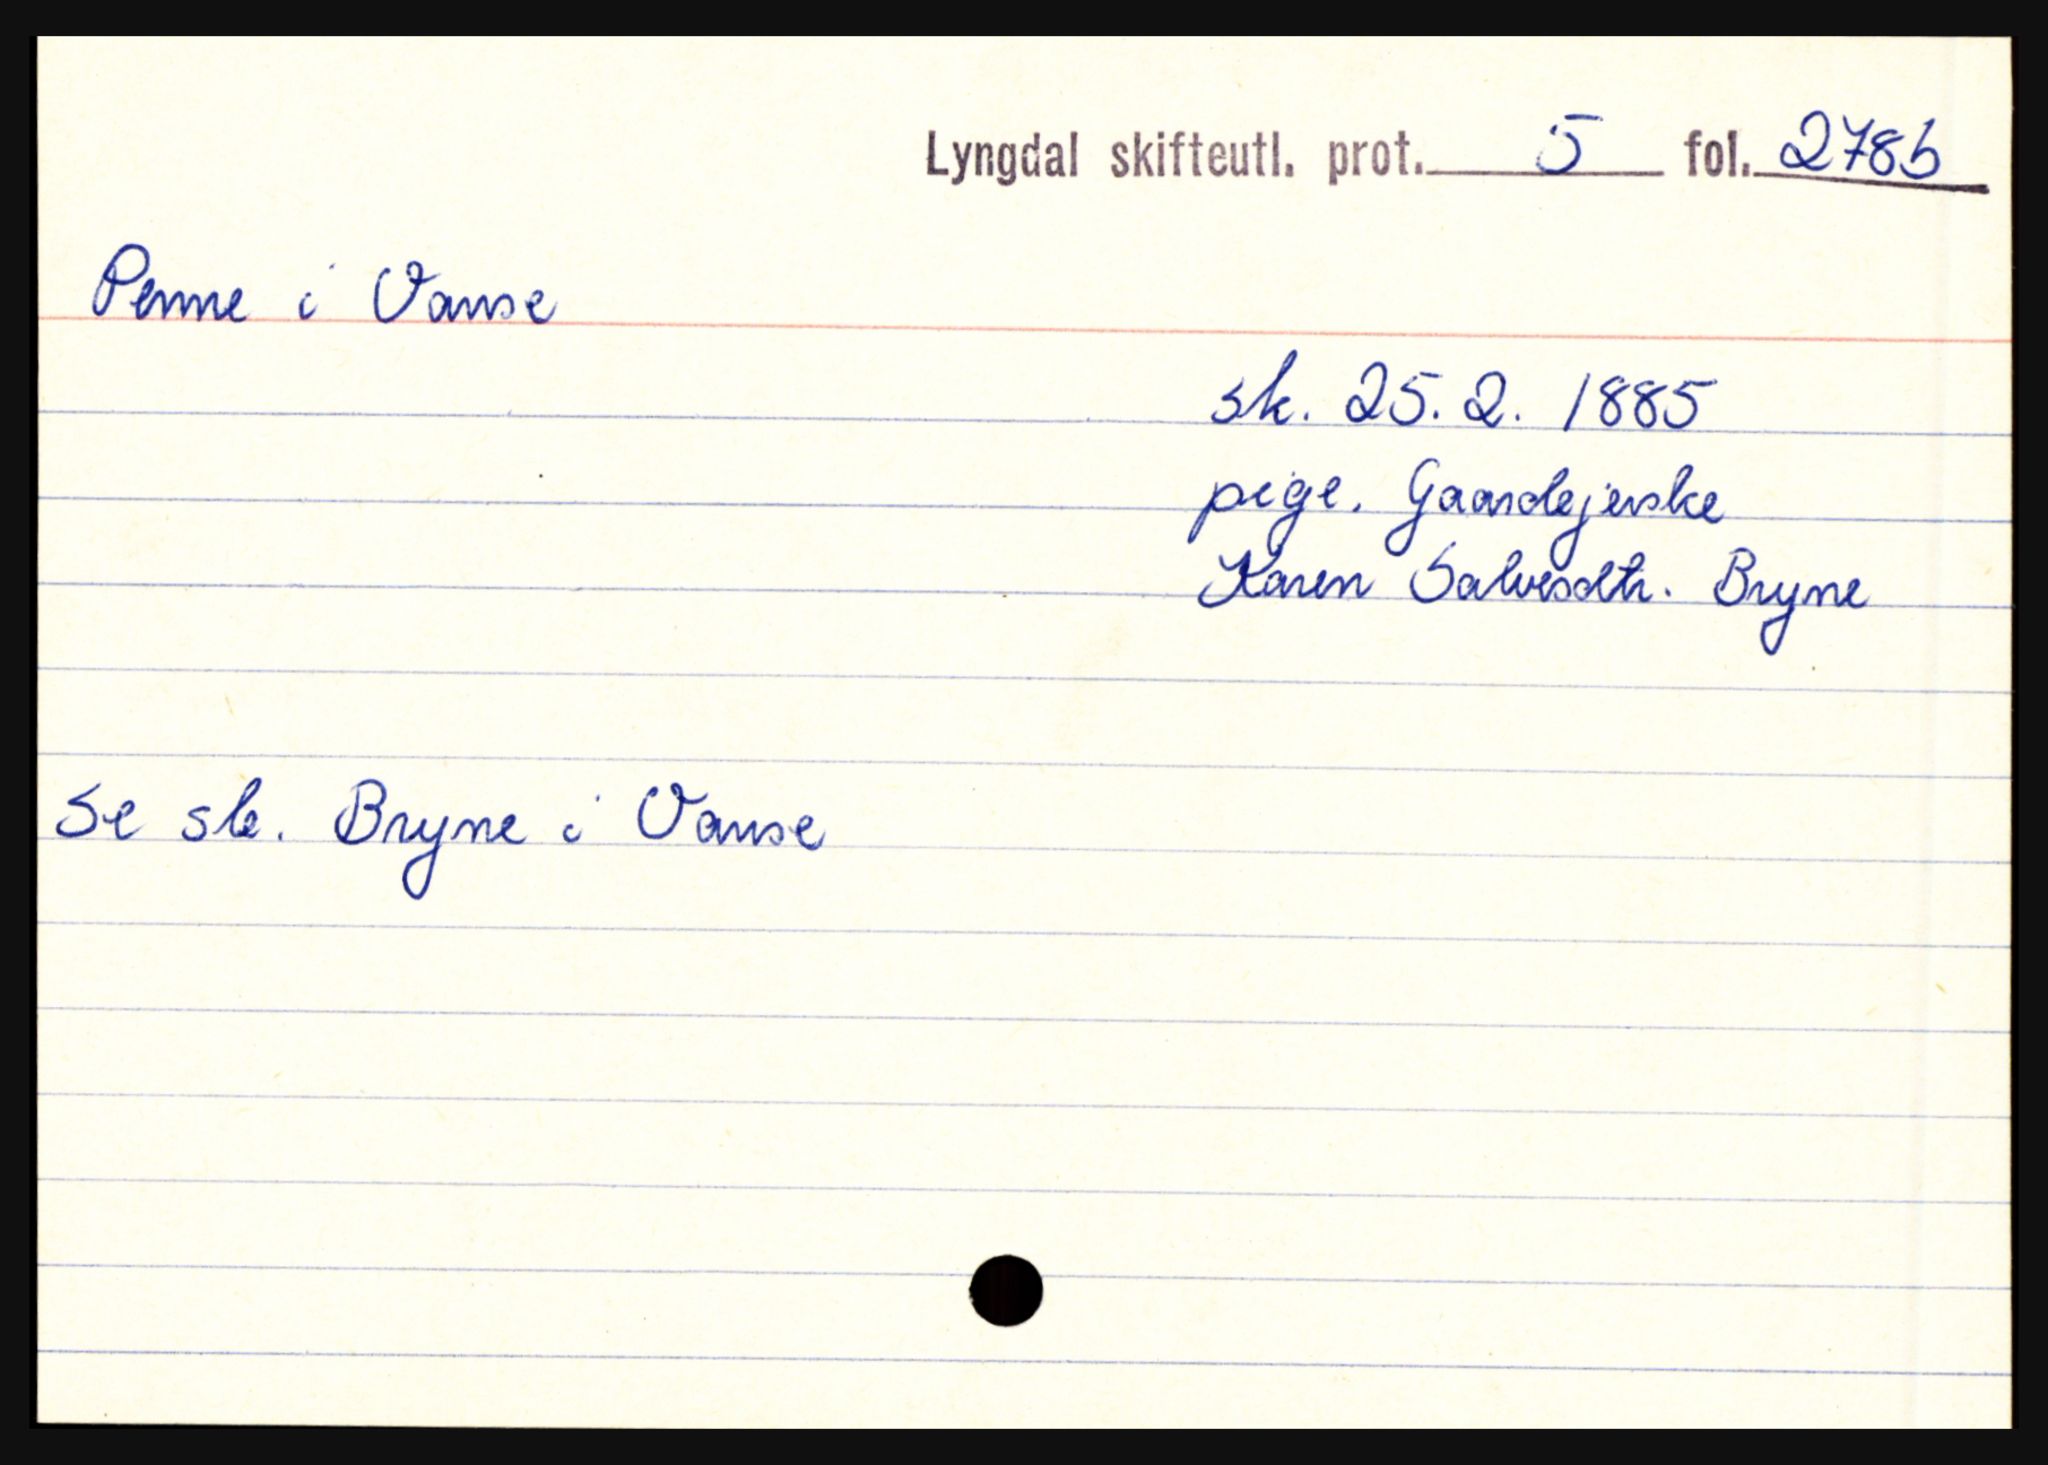 Lyngdal skifteutl. prot. 5 fol. 278b
Penne i Vanse
sk. 25. 2. 1885
pige. Gaardejerske
Karen Salvesdtr. Bryne
Se sk. Bryne i Vanse